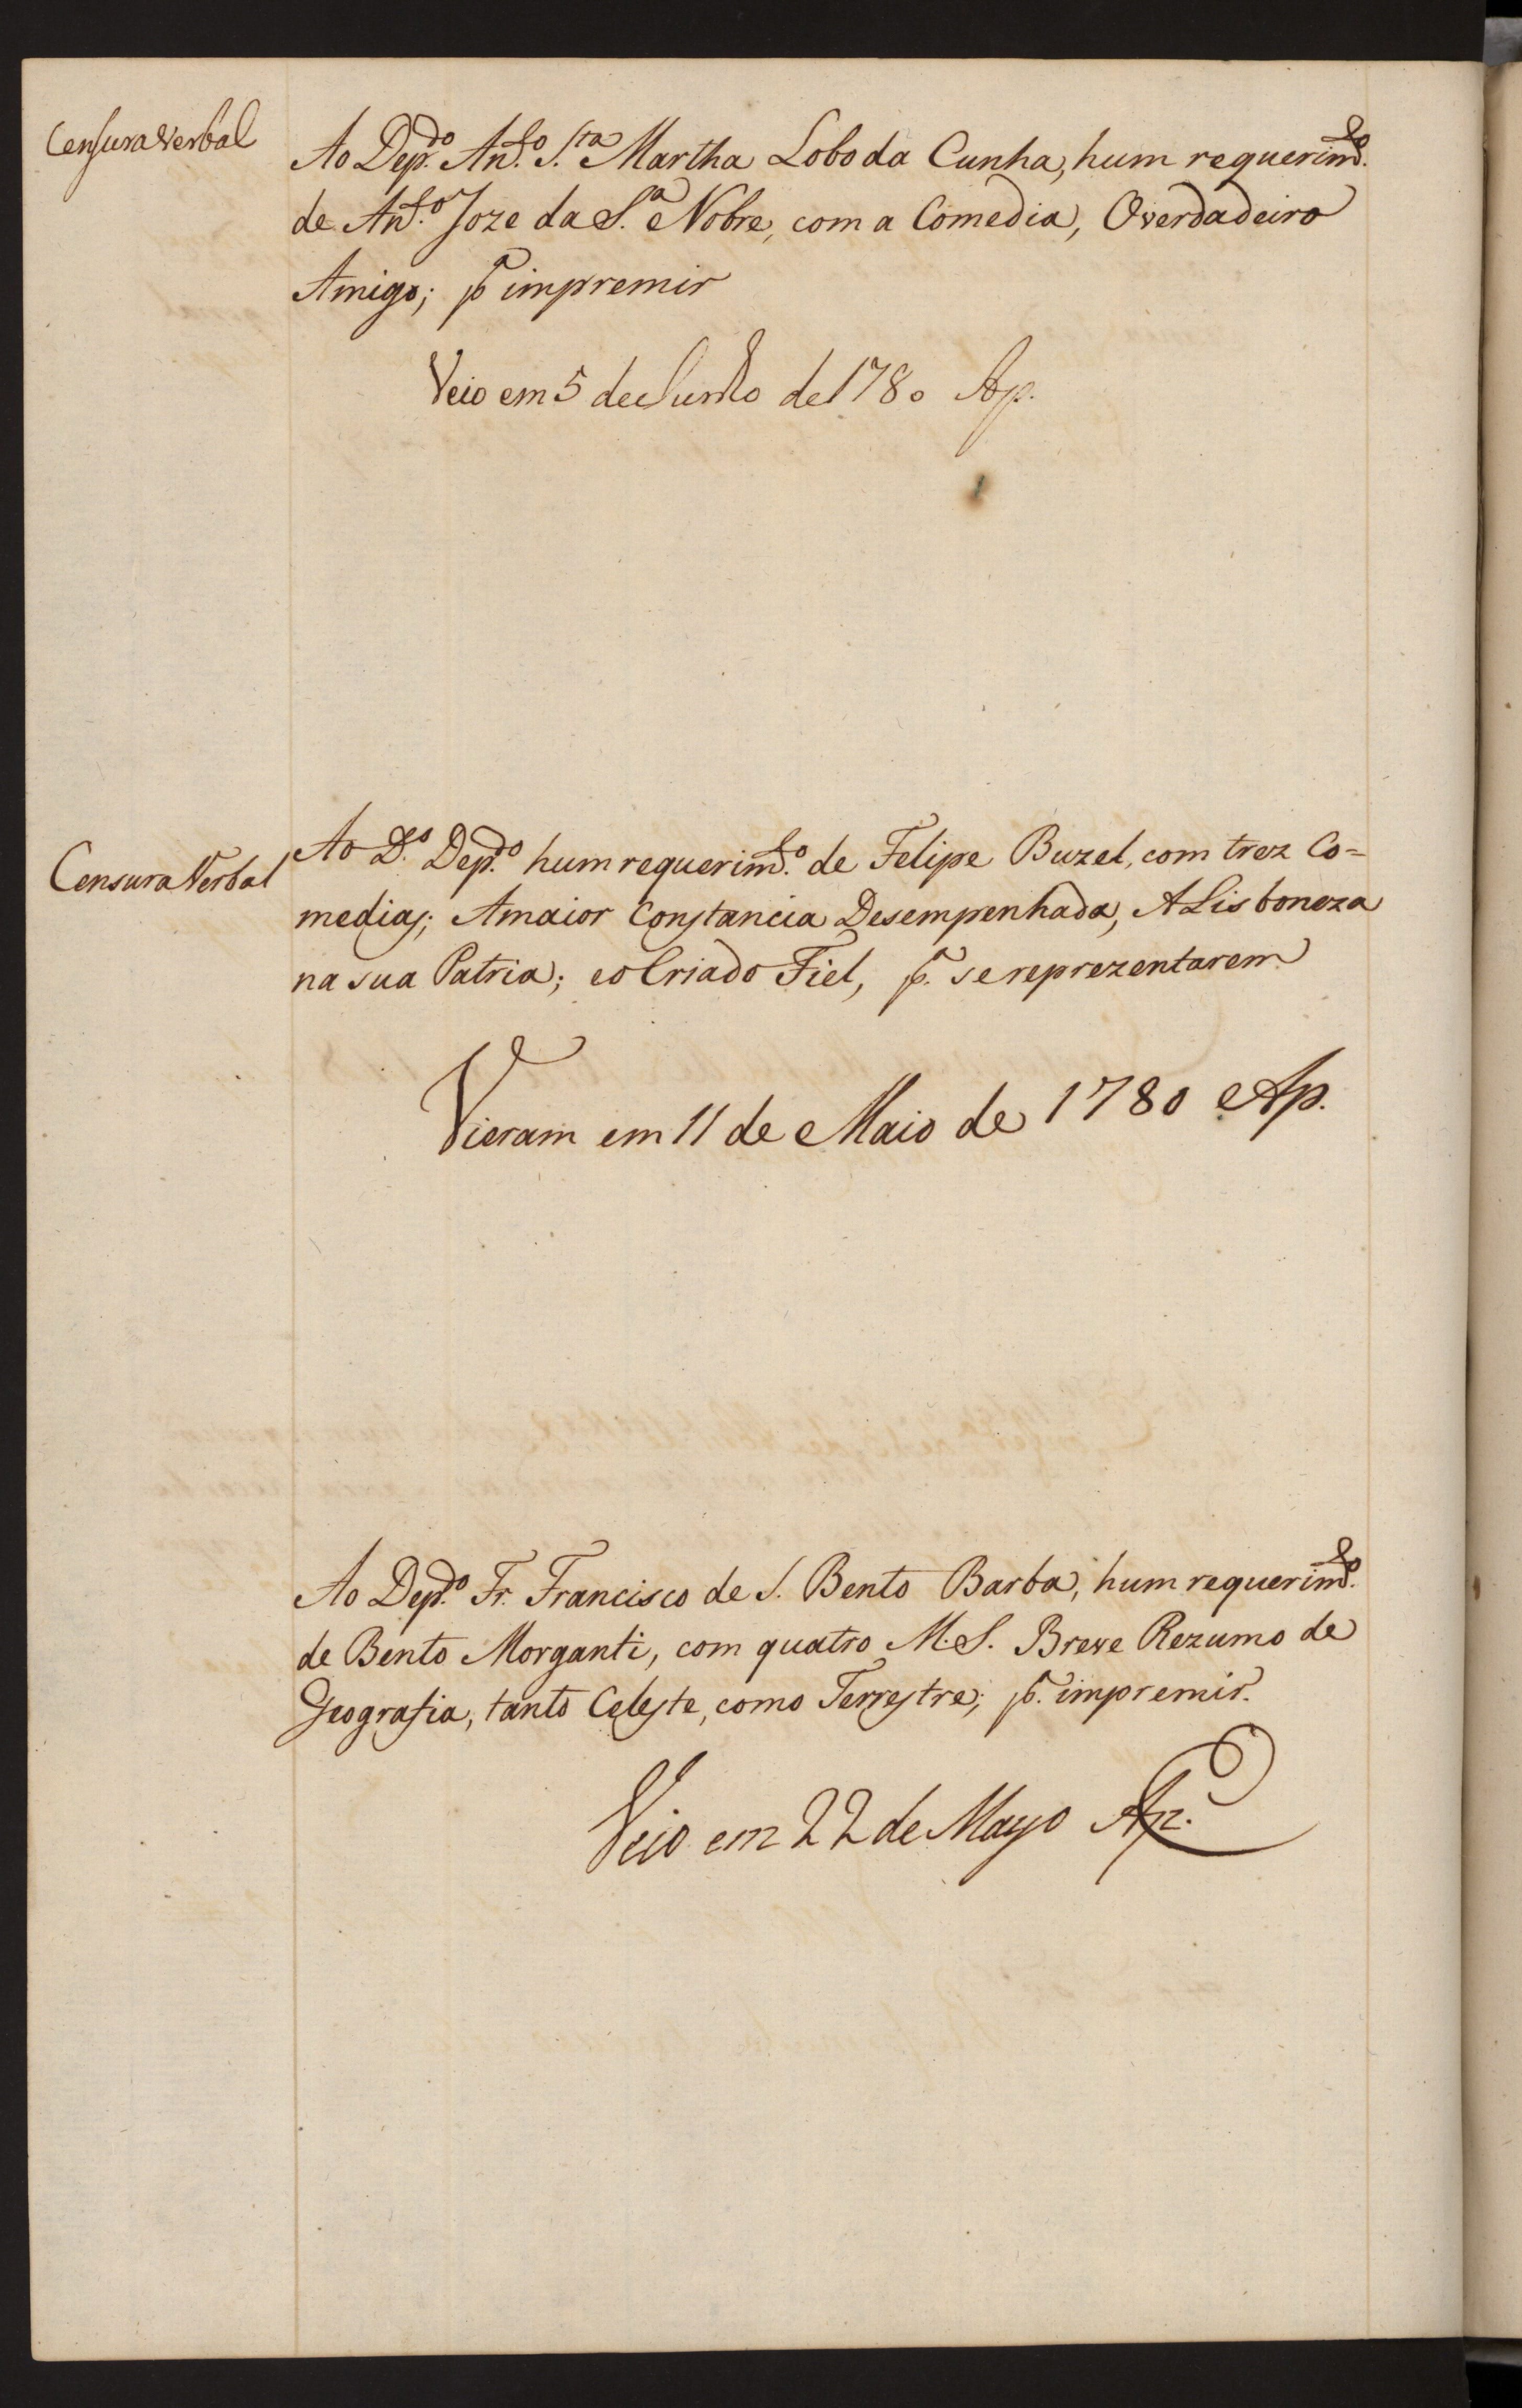 Censura Verbal
Ao Dep.do An.to S.ta Martha Lobo da Cunha, hum requerim.to
de An.to Joze da S.a Nobre, com a Comedia, O verdadeiro
Amigo; p.a impremir
Veio em 5 de Junho de 1780 Ap.
Censura Verbal
Ao D.o Dep.do hum requerim.to de Felipe Buzel, com trez Co=
medias; A maior Constancia Desempenhada, A Lisboneza
na sua Patria; e o Criado Fiel, p.a se reprezentarem
Vieram em 11 de Maio de 1780 Ap.
Ao Dep.do Fr. Francisco de S. Bento Barba, hum requerim.to
de Bento Morganti, com quatro M.S. Breve Rezumo de
Geografia, tanto Celeste, como Terrestre; p.a impremir.
Veio em 22 de Mayo Ap.